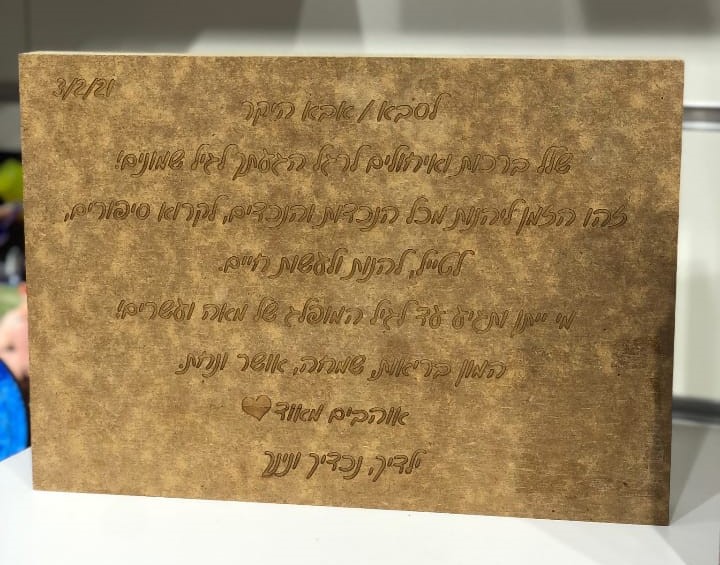 3/2/21
לסבא / אבא היקר
שלל ברכות ואיחולים לרגל הגעתך לגיל שמונים!
זהו הזמן ליהנות מכל הנכדות והנכדים, לקרוא סיפורים,
לטייל, להנות ולעשות חיים.
מי ייתן ותגיע עד לגיל המופלג של מאה ועשרים!
המון בריאות, שמחה, אושר ונחת.
אוהבים מאוד❤
ילדיך, נכדיך ונינך